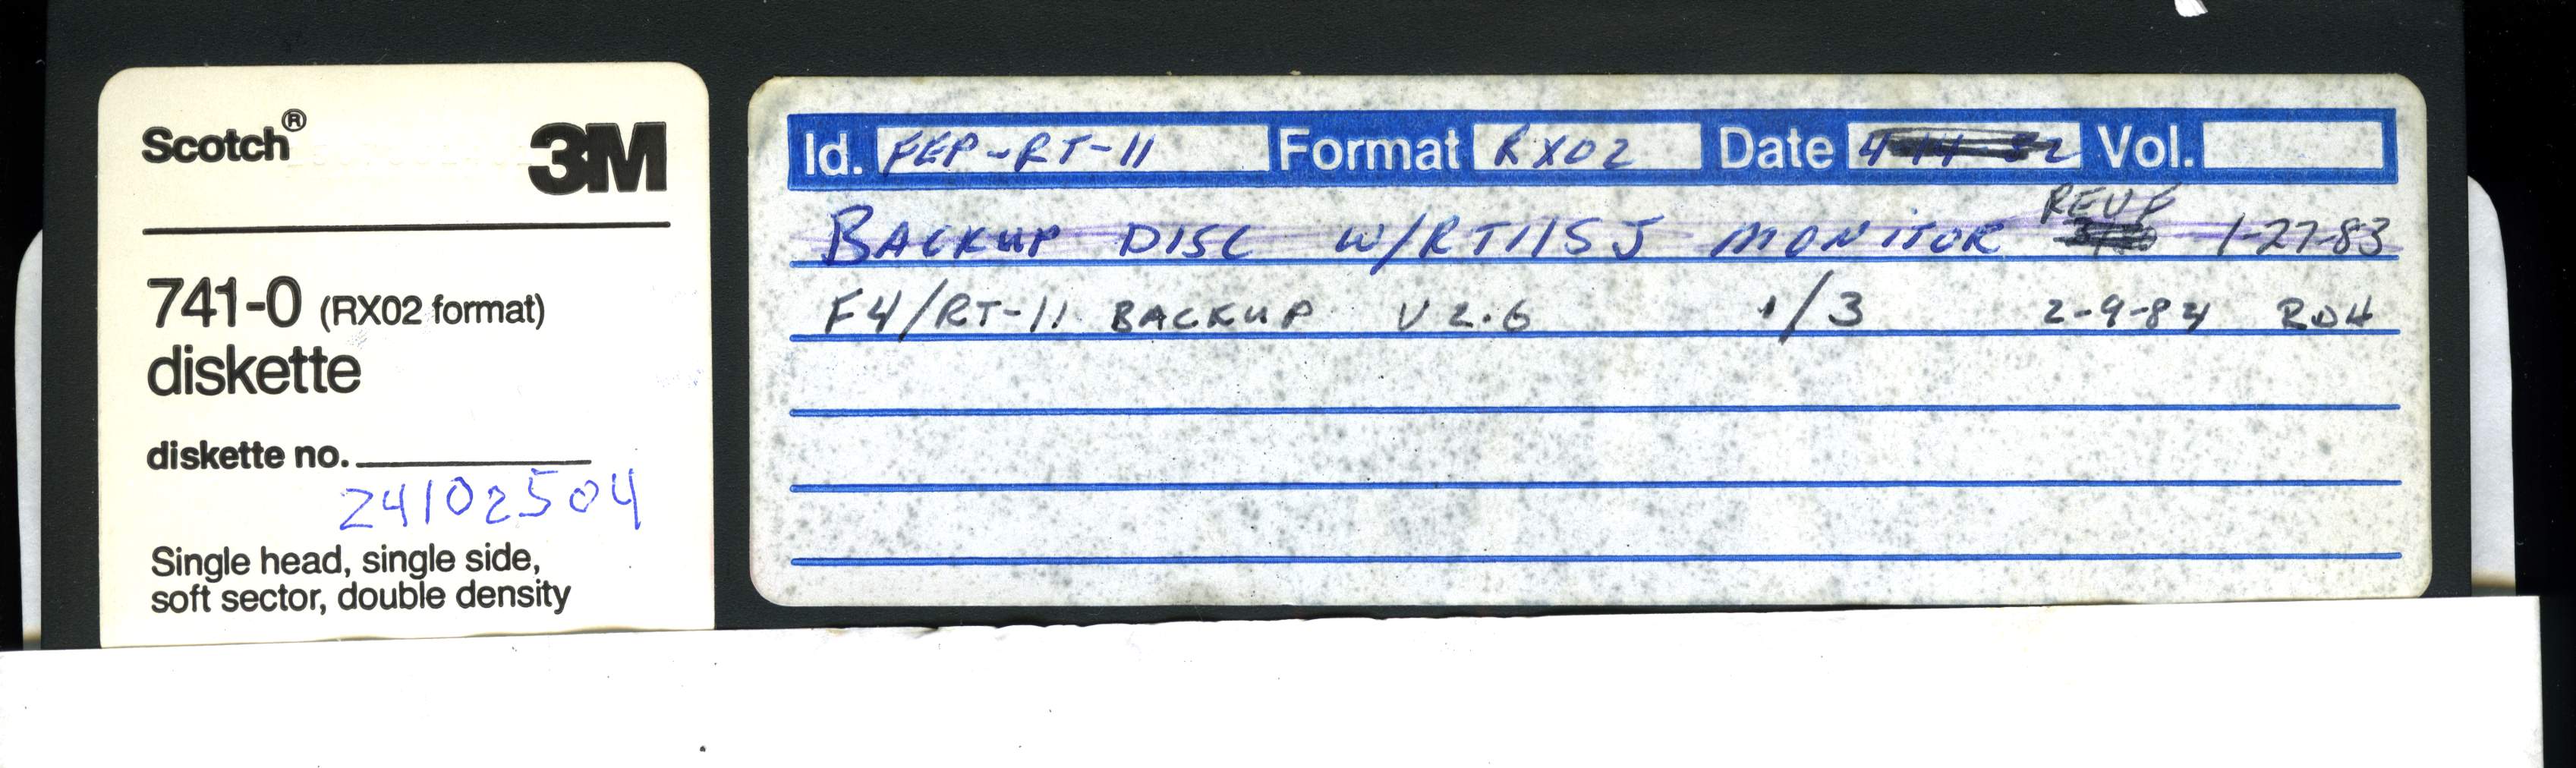 Scotch® 3M
741-0 (RX02 format)
diskette
diskette no.
24102504
Single head, single side,
soft sector, double density
Id. FEP-RT-11 Format RX02 Date 4-14-82 Vol.
BACKUP DISC W/RT11SJ MONITOR REVF 1-27-83
F4/RT-11 BACKUP V2.6 1/3 2-9-84 RDH